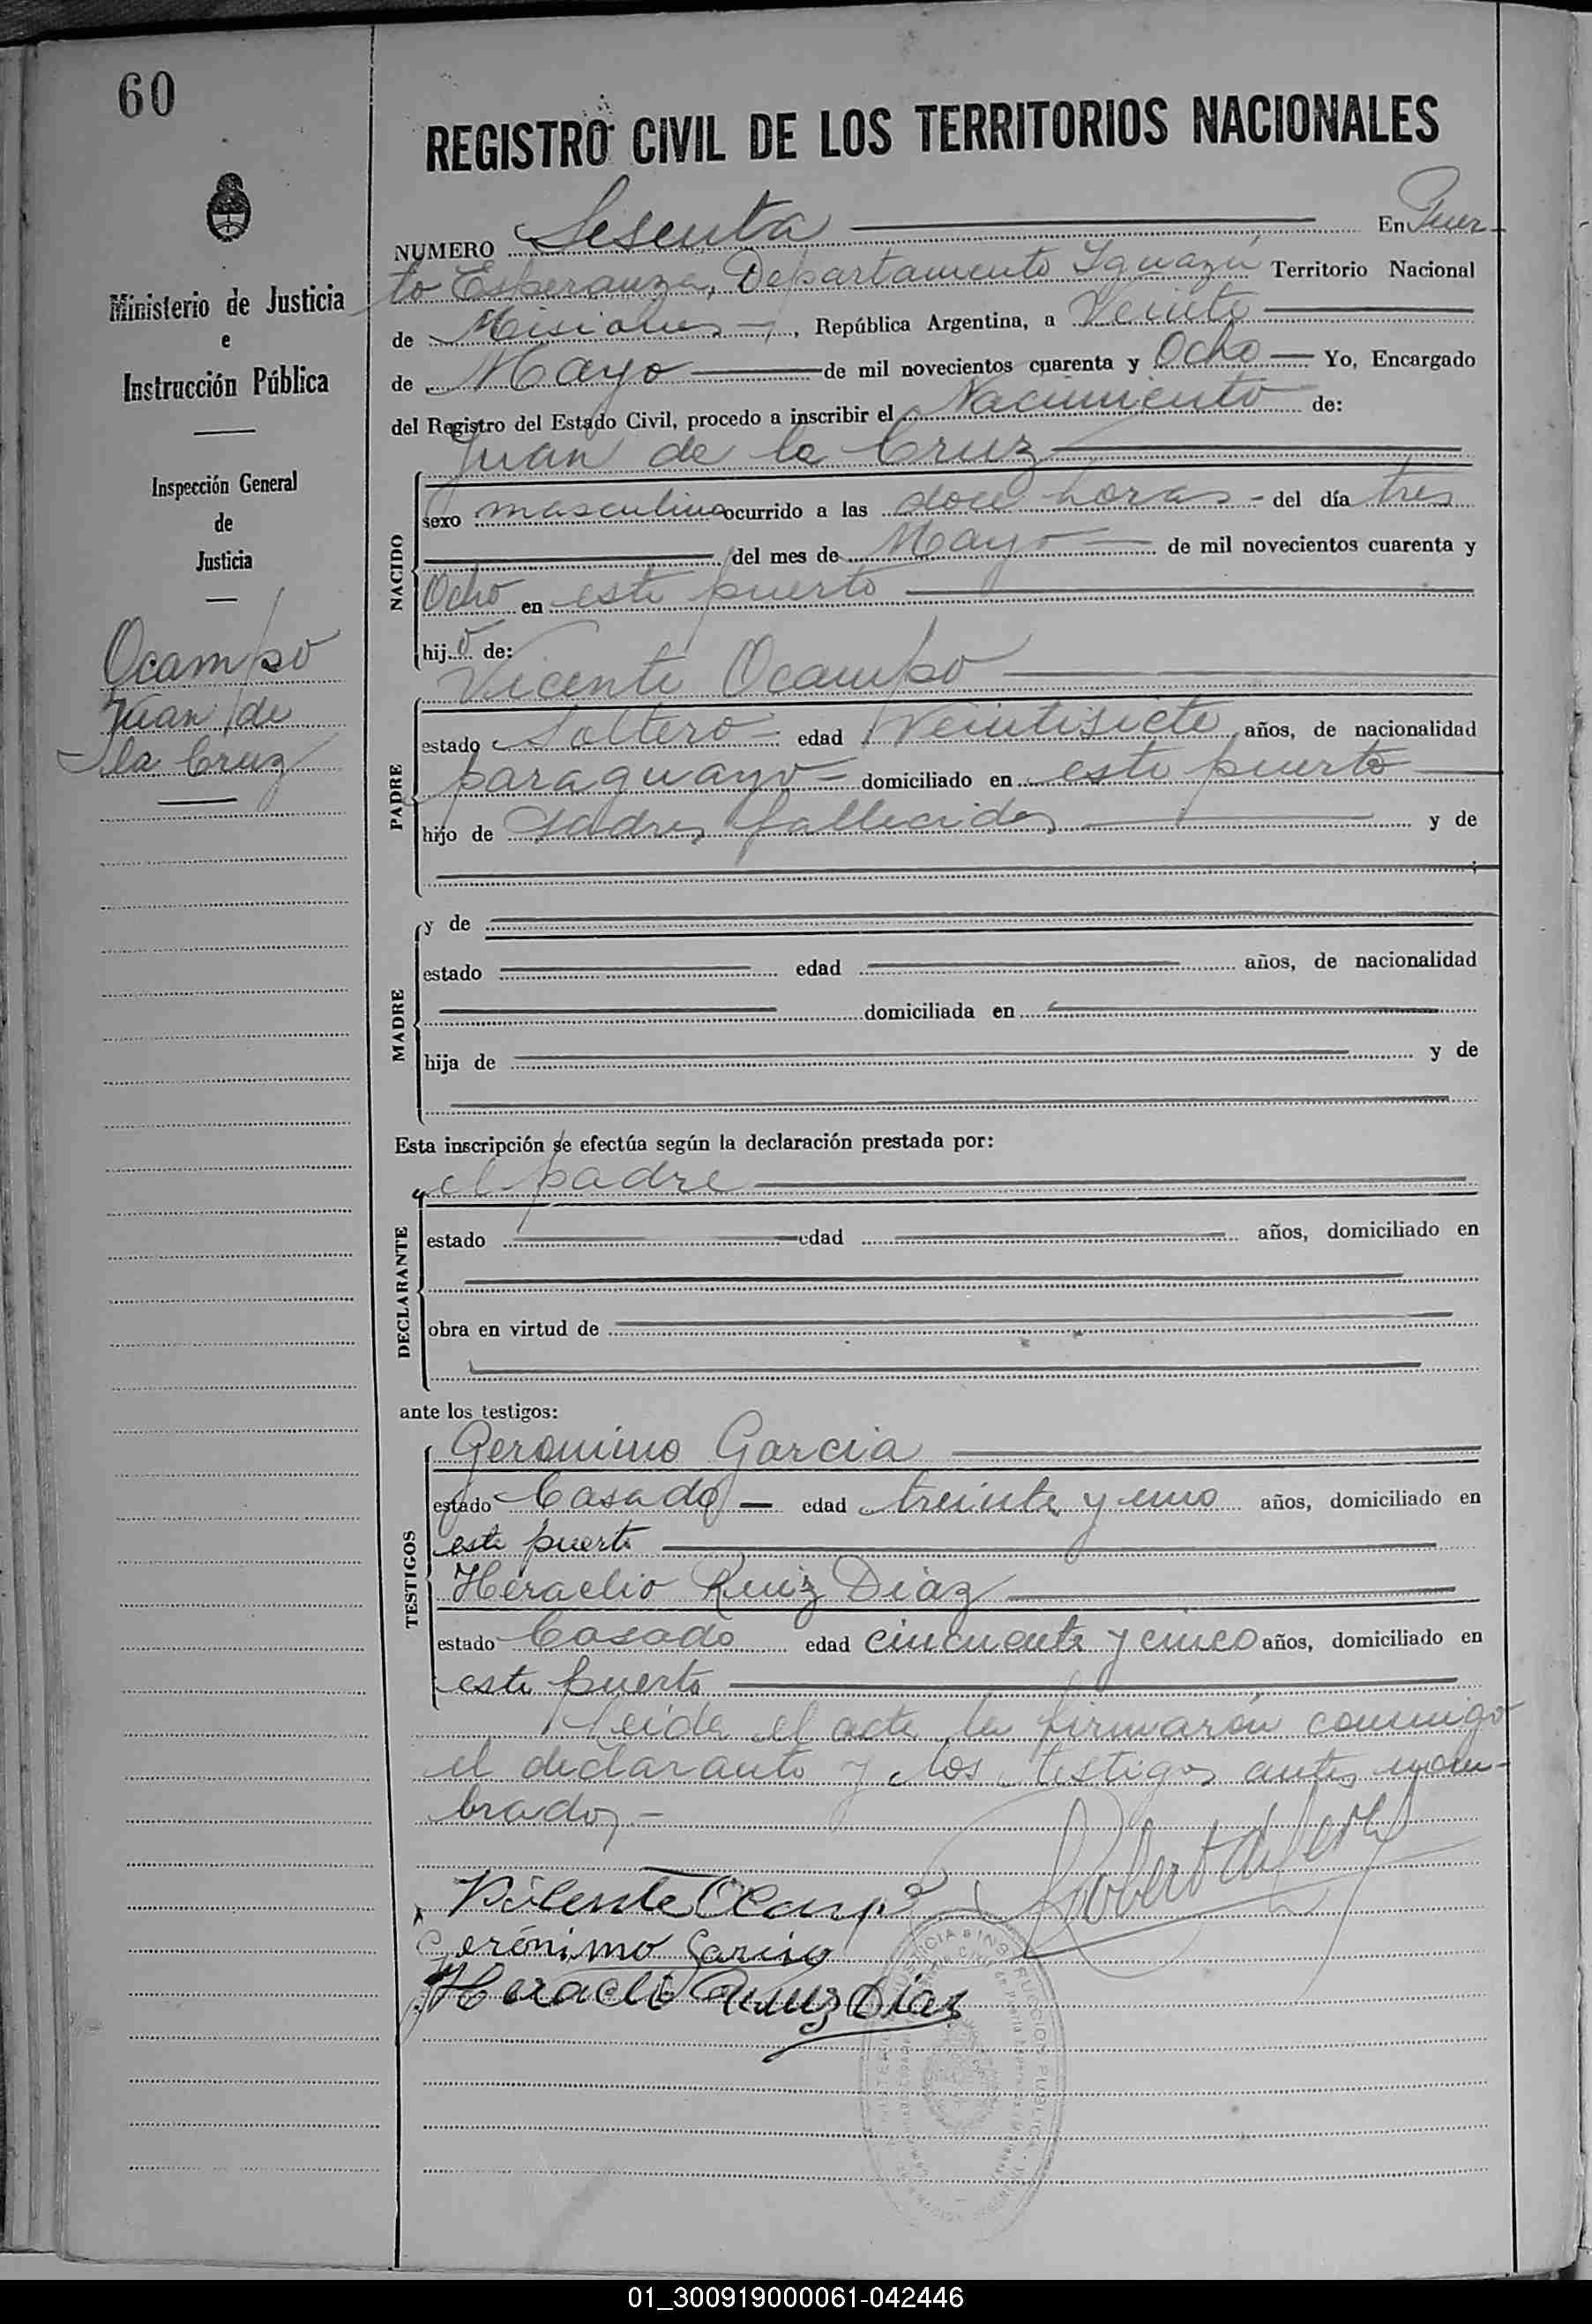 60
REGISTRO CIVIL DE LOS TERRITORIOS NACIONALES
NUMERO Sesenta En Puer-
to Esperanza, Departamento Iguazú Territorio Nacional
de Misiones, República Argentina, a Veinte
de Mayo de mil novecientos cuarenta y Ocho Yo, Encargado
del Registro del Estado Civil, procedo a inscribir el Nacimiento de:
Ministerio de Justicia
e
Instrucción Pública
Inspección General
de
Justicia
Ocampo
Juan de
la Cruz
NACIDO
Juan de la Cruz
sexo masculino ocurrido a las doce horas - del día tres
del mes de Mayo de mil novecientos cuarenta y
Ocho en este puerto
hijo de:
PADRE
Vicente Ocampo
estado Soltero edad Veintisiete años, de nacionalidad
paraguayo domiciliado en este puerto
hijo de padres fallecidos y de
MADRE
y de
estado edad años, de nacionalidad
domiciliada en
hija de y de
Esta inscripción se efectúa según la declaración prestada por:
DECLARANTE
el padre
estado edad años, domiciliado en
obra en virtud de
ante los testigos:
TESTIGOS
Geronimo Garcia
estado Casado edad treinta y uno años, domiciliado en
este puerto
Heraclio Ruiz Diaz
estado Casado edad cincuenta y cinco años, domiciliado en
este puerto
Leida el acta la firmarón conmigo
el declarante y los testigos antes nom-
brados.-
Vicente Ocampo
Gerónimo Garcia
Heraclio Ruiz Diaz
01_300919000061-042446